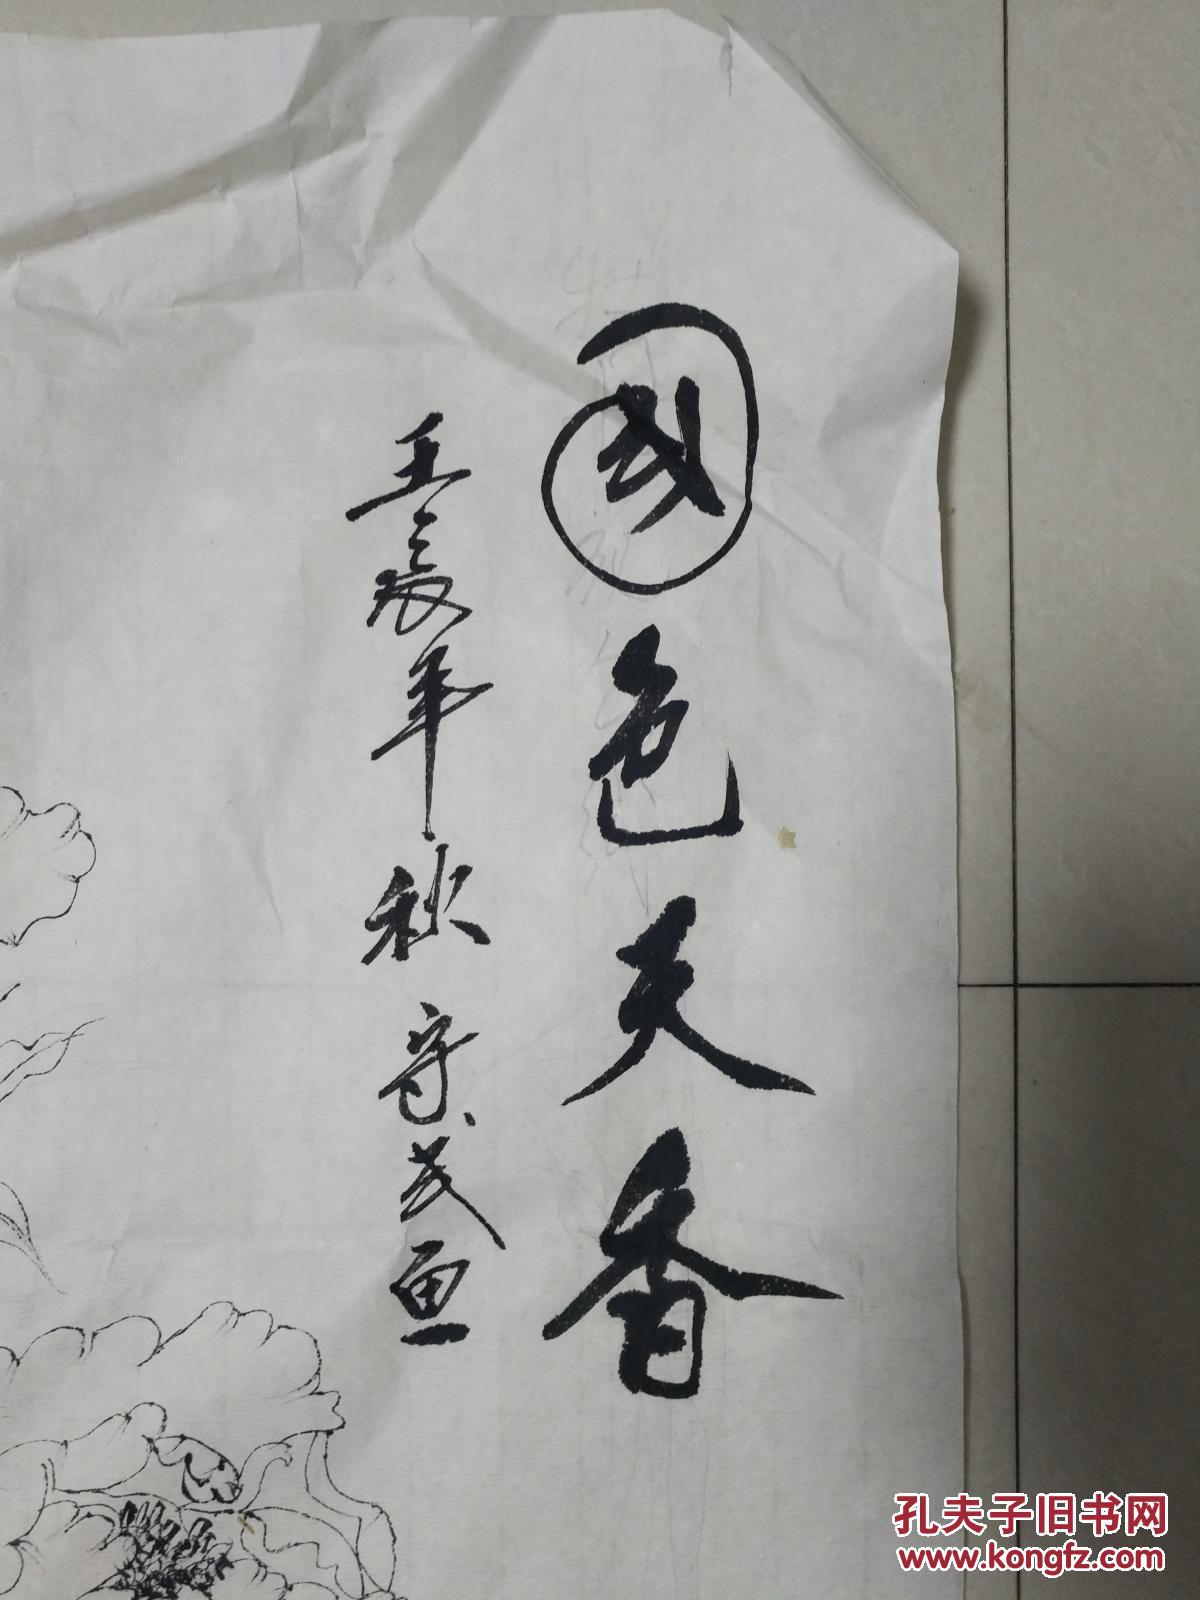 國色天香
壬辰年秋守武画
孔夫子旧书网
www.kongfz.com